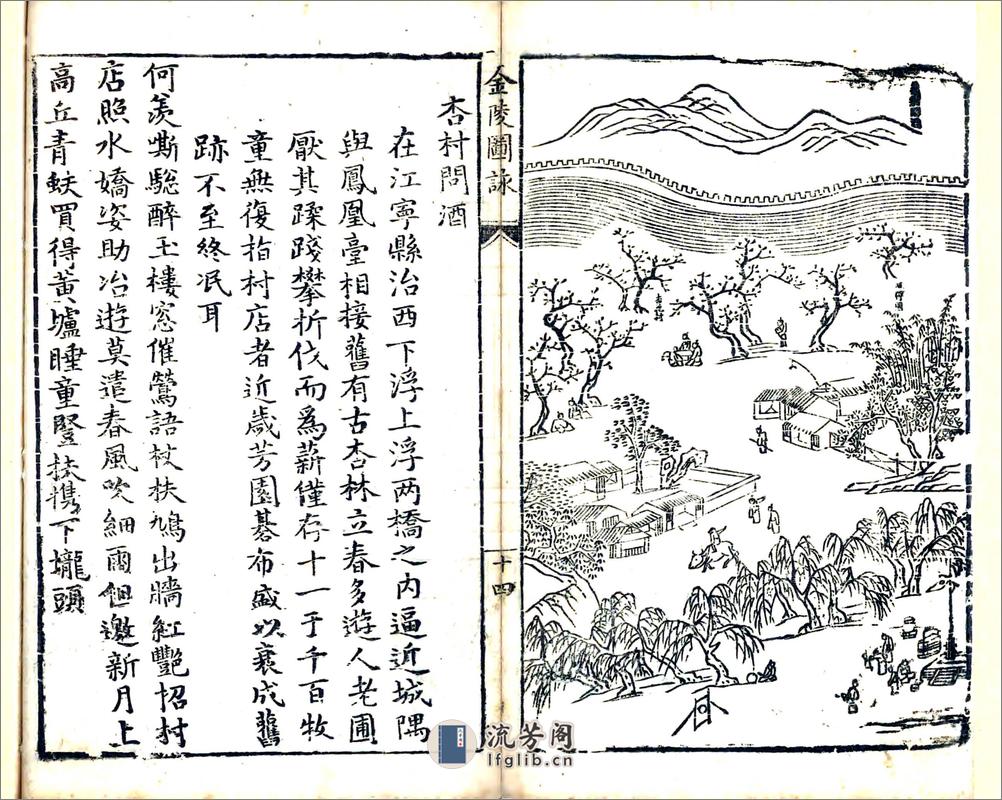 金陵圖詠
十四
杏村問酒
在江寧縣治西下浮上浮两橋之内逼近城隅
與鳳凰臺相接舊有古杏林立春多遊人老圃
厭其蹂踐攀折伐而爲薪僅存十一于千百牧
童無復指村店者近歲芳園碁布盛以衰成舊
跡不至終泯耳
何羡嘶驄醉玉樓窓催鶯語杖扶鳩出牆紅艷招村
店照水嬌姿助冶遊莫遣春風吹細雨但邀新月上
高丘青蚨買得黄壚睡童豎扶携下壠頭
流芳阁
lfglib.cn